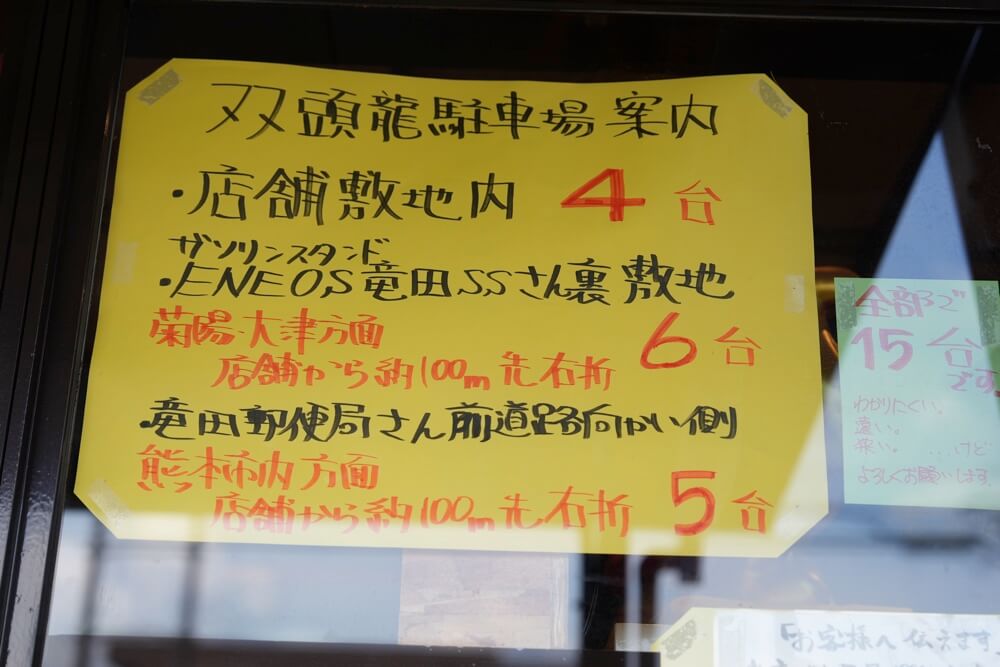 双頭龍駐車場案内
・店舗敷地内 4台
ガソリンスタンド
・ENEOS竜田SSさん裏敷地
菊陽・大津方面 6台
店舗から約100m先右折
・竜田郵便局さん前道路向かい側
熊本市内方面
店舗から約100m先右折 5台
全部で
15台
です
わかりにくい。
遠い。
狭い。 ...けど
よろしくお願いします。
「お客様へ伝えます